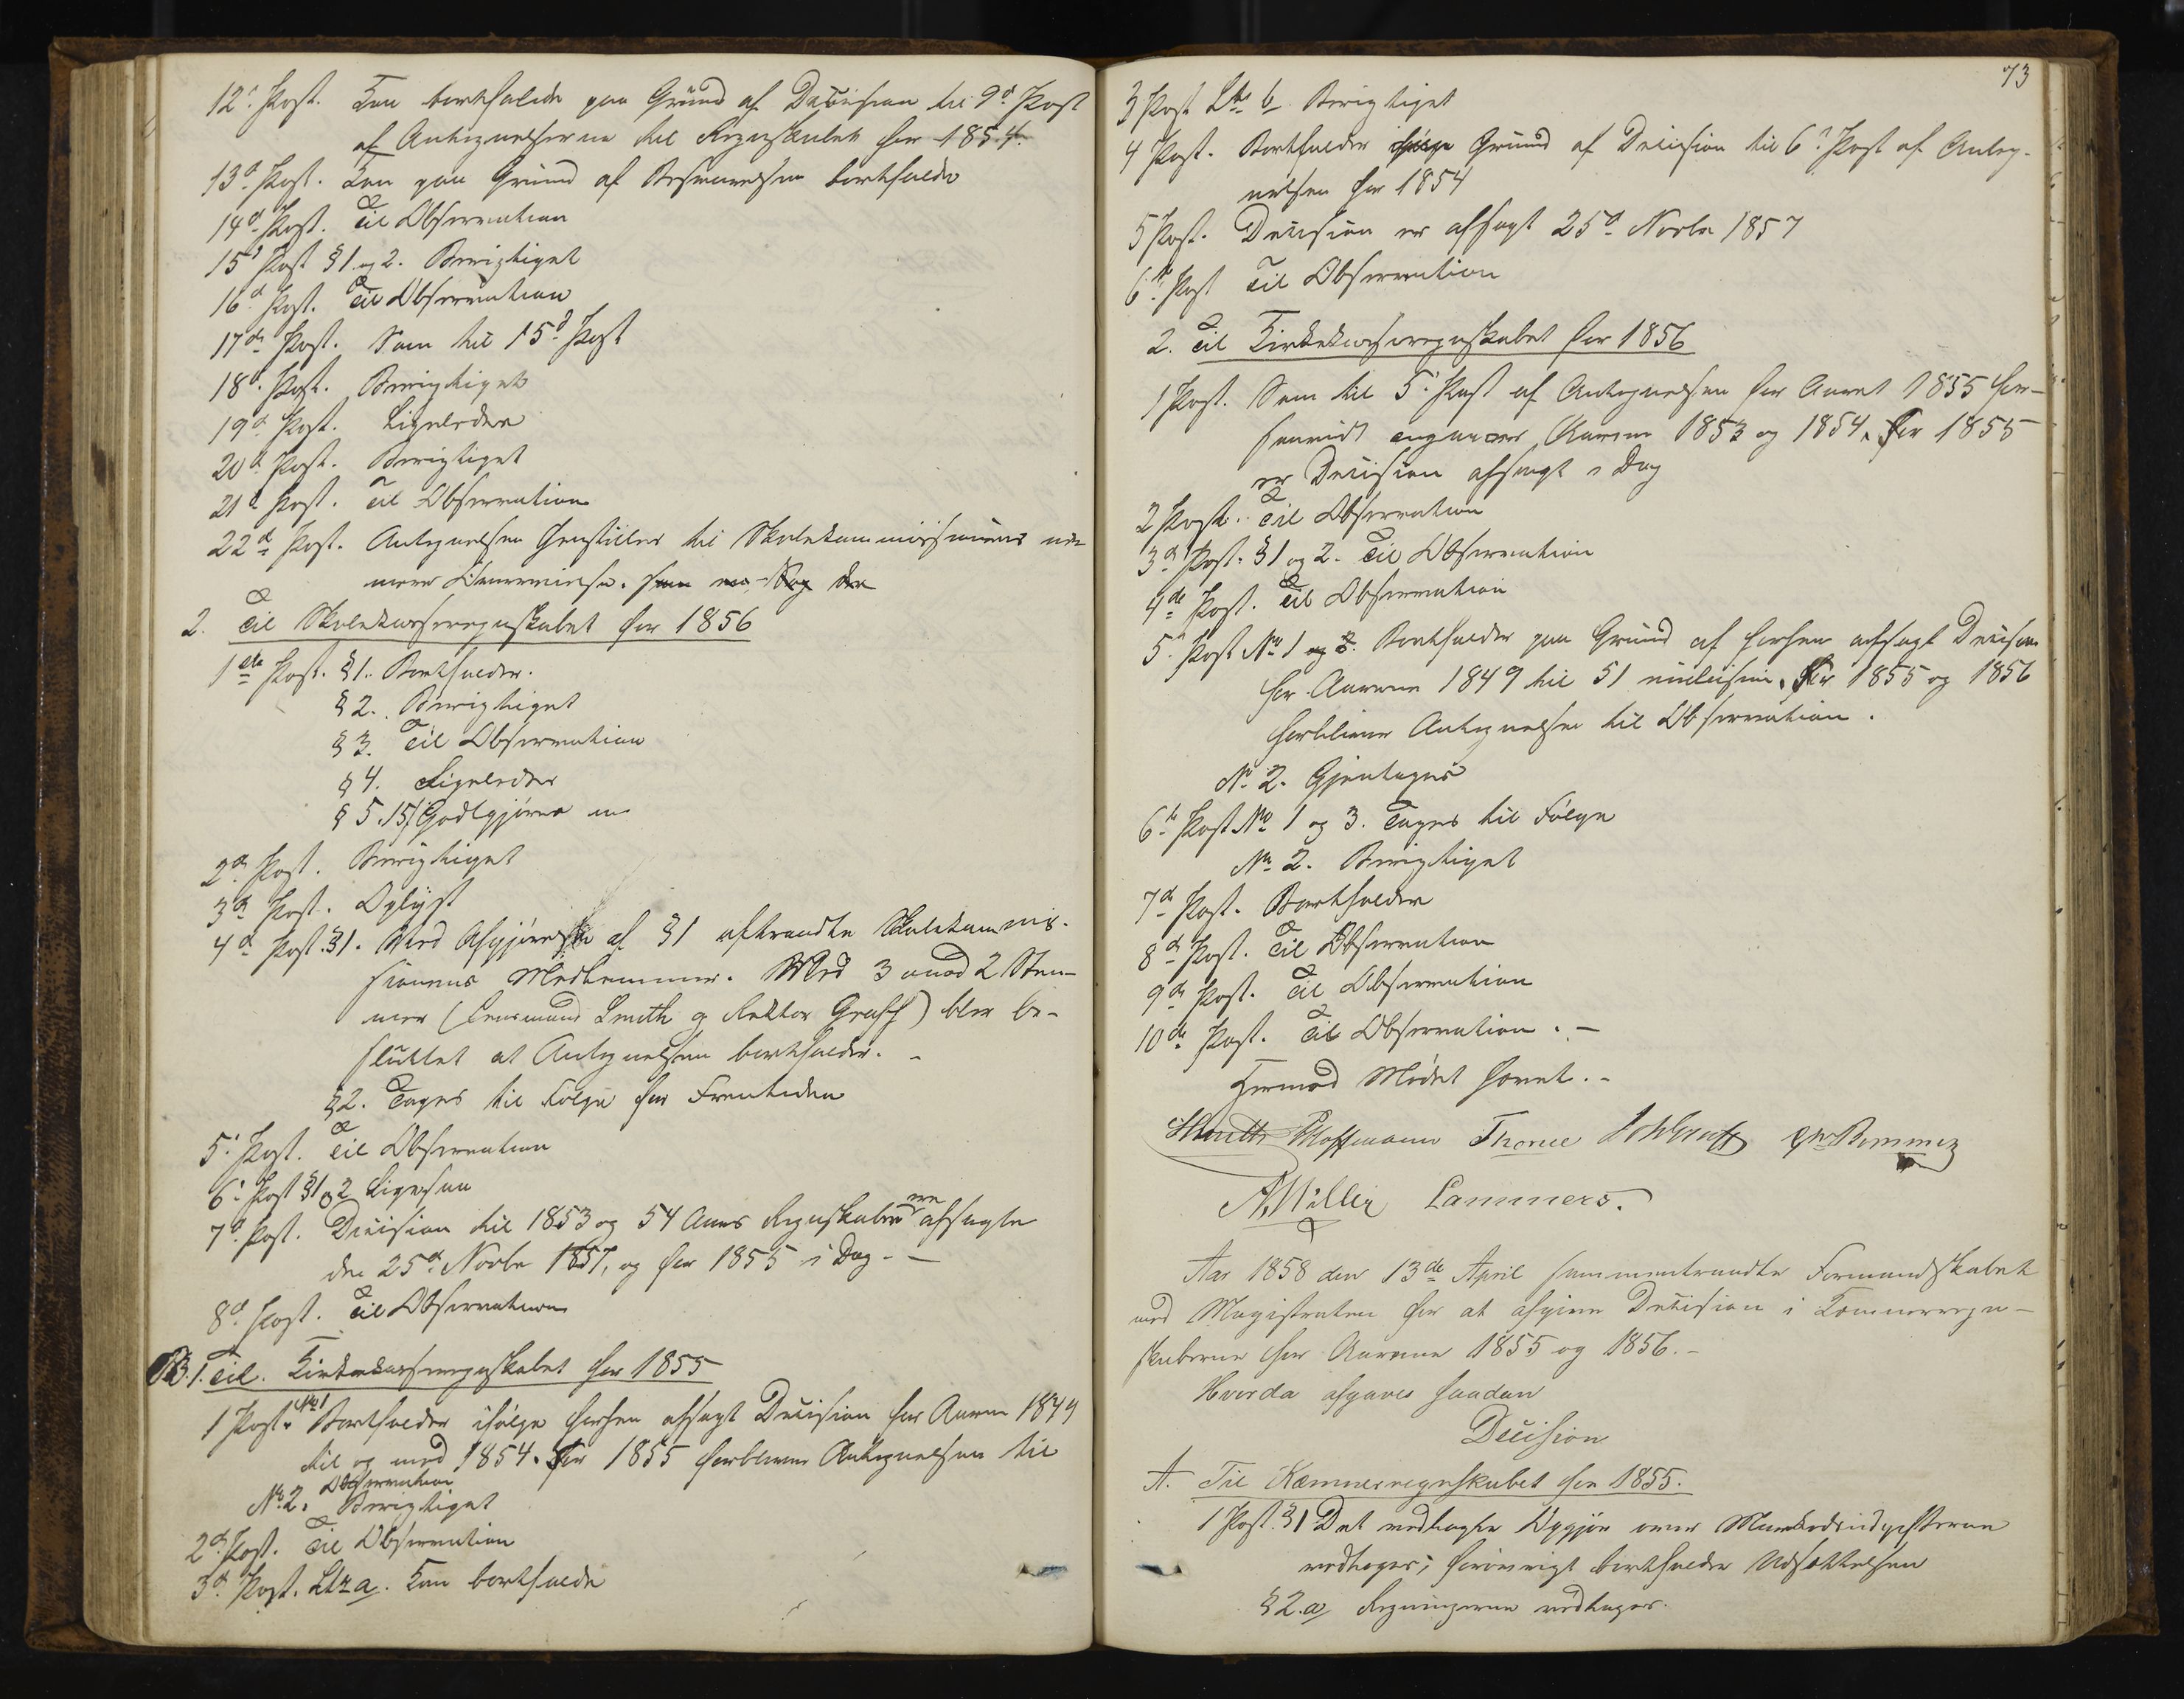 12d. Post. Kan bortfalde paa Grund af Decision til 9d Post
af Antegnelserne til Regnskabet for 1854.
13d. Post. Kan paa Grund af Besvarelsen bortfalde
14d. Post. Til Observation
15d Post §1 og 2. Berigtiget
16d. Post. Til Observation
17de Post. Som til 15d Post
18d. Post. Berigtiget
19d. Post. Ligeledes
20d. Post. Berigtiget
21d Post. Til Observation
22d Post. Antegnelsen henstilles til Skolekommissionens nær-
mere
2. Til Skolekasseregnskabet for 1856
1ste Post. §1. Bortfalder.
§2. Berigtiget
§3. Til Observation
§4. Ligeledes
§5. 15/ Godtgjøres
2de Post. Berigtiget
3de Post. Oplyst
4d Post. §1. Ved Afgjørelse af §1 aftraadte Skolekommis-
sionens Medlemmer. Med 3 mod 2 Stem-
mer (Lensmand Smith og Rektor Graff) blev be-
sluttet at Antegnelsen bortfalder. -
§2. Tages til Følge for Fremtiden
5. Post. Til Observation
6. Post §1 og 2 Ligesaa
7d. Post. Decision til 1853 og 54 Aars Regnskaberne afsagte
den 25de Novbr 1857, og for 1855 i Dag. -
8d Post. Til Observation
B. 1. Til Kirkekasseregnskabet for 1855
1 Post. No 1 Bortfalder ifølge forhen afsagt Decision for Aarene 1849
til og med 1854. For 1855 forbliver Antegnelsen til
Observation
No 2. Berigtiget
2d Post. Til Observation
3d. Post. Ltr a. Kan bortfalde
73
3 Post Ltr b. Berigtiget
4 Post. Bortfalder ifølge Grund af Decision til 6te Post af Anteg-
nelsen for 1854
5 Post. Decision er afsagt 25d Novbr 1857
6te Post Til Observation
2. Til Kirkekasseregnskabet for 1856
1 Post. Som til 5. Post af Antegnelsen for Aaret 1855 for-
saavidt angaaer Aarene 1853 og 1854. For 1855
er Decision afsagt i Dag
2 Post. Til Observation
3d Post. §1 og 2. Til Observation
4de Post. Til Observation
5. Post No 1 og 3. Bortfalder paa Grund af forhen afsagt Decision
for Aarene 1849 til 51 inclusive. For 1855 og 1856
forbliver Antegnelsen til Observation.
No 2. Gjentages
6te Post No 1 og 3. Tages til Følge
No 2. Berigtiget
7d Post. Bortfalder
8d Post. Til Observation
9de Post. Til Observation
10de Post. Til Observation. -
Hermed Mødet hævet. -
Smith Hoffmann Thorne
A. Møller Lammers.
Aar 1858 den 13de April sammentraadte Formandskabet
med Magistraten for at afgive Decision i Kæmnerregn-
skaberne for Aarene 1855 og 1856. -
Hvorda afgaves saadan
Decision
A. Til Kæmnerregnskabet for 1855.
1 Post. §1 Det vedtagne Opgjør over Mandtalsudgifterne
vedtages; forøvrigt bortfalder Udsættelsen
§2. a) Regningerne vedtages.